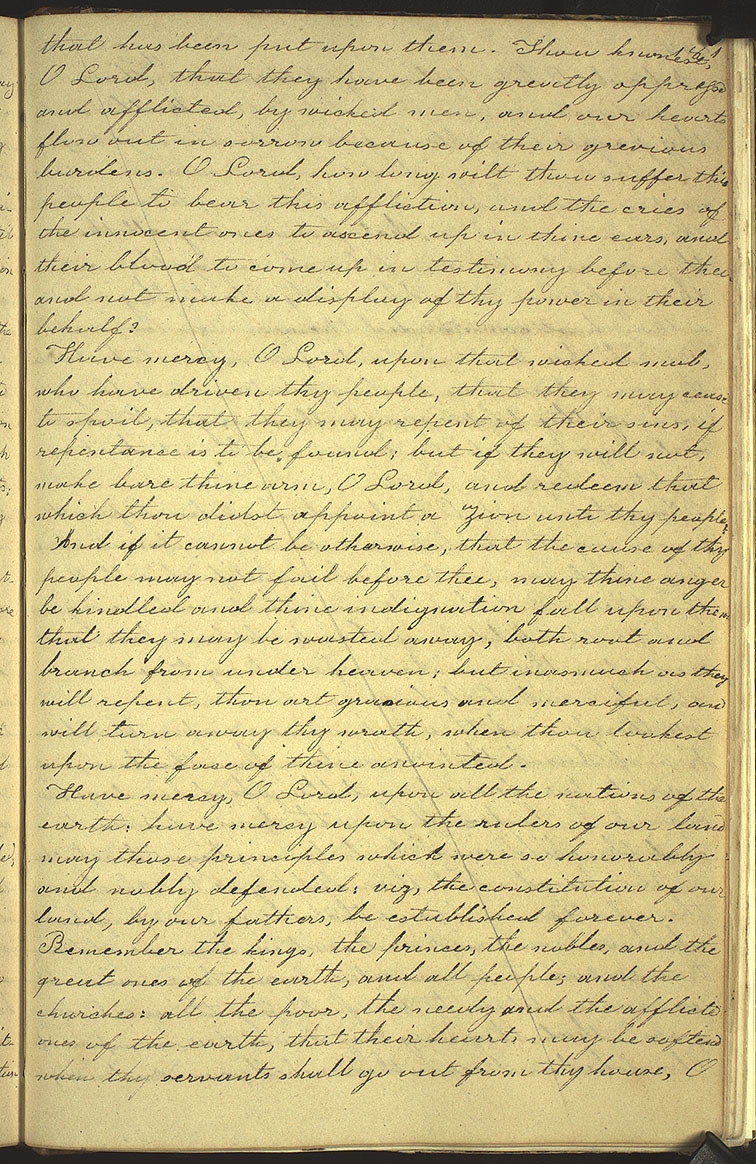 that has been put upon them. Thou knowest,
O Lord, that they have been greatly oppressed
and afflicted, by wicked men, and our hearts
flow out in sorrow because of their grevious
burdens. O Lord, how long wilt thou suffer this
people to bear this affliction, and the cries of
the innocent ones to ascend up in thine ears, and
their blood to come up in testimony before thee
and not make a display of thy power in their
behalf?
Have mercy, O Lord, upon that wicked mob,
who have driven thy people, that they may cease
to spoil, that they may repent of their sins, if
repentance is to be found; but if they will not,
make bare thine arm, O Lord, and redeem that
which thou didst appoint a Zion unto thy people.
And if it cannot be otherwise, that the cause of thy
people may not fail before thee, may thine anger
be kindled and thine indignation fall upon them
that they may be wasted away, both root and
branch from under heaven; but inasmuch as they
will repent, thou art gracious and merciful, and
will turn away thy wrath, when thou lookest
upon the face of thine anointed.
Have mercy, O Lord, upon all the nations of the
earth: have mercy upon the rulers of our land
may those principles which were so honorably
and nobly defended: viz, the constitution of our
land, by our fathers, be established forever.
Remember the kings, the princes, the nobles, and the
great ones of the earth, and all people; and the
churches: all the poor, the needy and the afflicted
ones of the earth, that their hearts may be softend
when thy servants shall go out from thy house, O